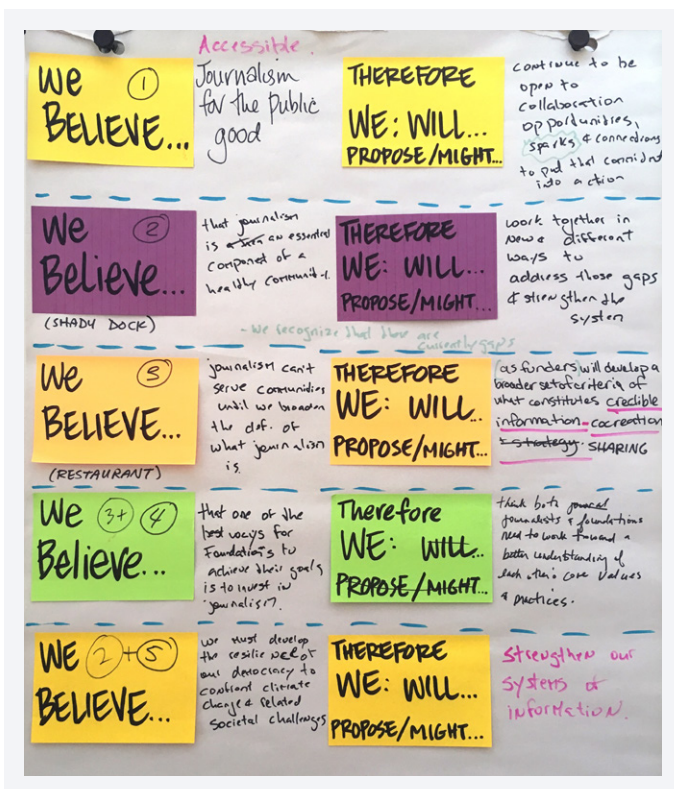 We ①
BELIEVE...
Accessible.
Journalism
for the public
good
THEREFORE
WE: WILL...
PROPOSE/MIGHT...
continue to be
open to
collaboration
opportunities,
sparks & connections
to put that
into action
We ②
Believe...
(SHADY DOCK)
that journalism
is an essential
component of a
healthy community.
THEREFORE
WE: WILL...
PROPOSE/MIGHT...
work together in
new & different
ways to
address those gaps
& strengthen the
system
- We recognize that there are
currently gaps
We ③
BELIEVE...
(RESTAURANT)
journalism can't
serve communities
until we broaden
the def. of
what journalism
is.
THEREFORE
WE: WILL...
PROPOSE/MIGHT...
(as funders) will develop a
broader set of criteria of
what constitutes credible
information - cocreation
& strategy. SHARING
We 3+ ④
Believe...
that one of the
best ways for
Foundations to
achieve their goals
is to invest in
journalism.
Therefore
WE: WILL...
PROPOSE/MIGHT...
think both
journalists & foundations
need to work toward a
better understanding of
each other's core values
& practices.
WE ②+⑤
BELIEVE...
we must develop
the resilience of
our democracy to
confront climate
change & related
societal challenges
THEREFORE
WE: WILL...
PROPOSE/MIGHT...
Strengthen our
systems of
information.